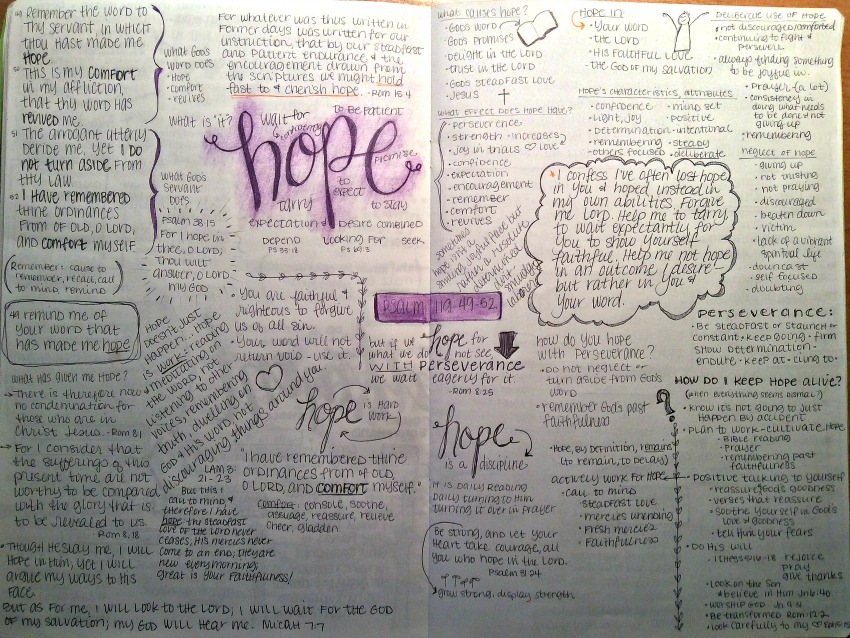 49 Remember the word to
thy servant, in which
thou hast made me
hope.
50 This is my comfort
in my affliction,
that thy word has
revived me.
51 The arrogant utterly
deride me, yet I do
not turn aside from
thy law.
52 I have remembered
thine ordinances
from of old, O Lord,
and comfort myself.
what God's
word does
• Hope
• comfort
• revives
what God's
servant
does
Psalm 38:15
For I hope in
thee, O Lord;
Thou will
answer, O Lord
my God
Remember: cause to
remember, recall, call
to mind, remind
49 remind me of
your word that
has made me hope
what has given me hope?
→ There is therefore now
no condemnation for
those who are in
Christ Jesus. - Rom 8:1
→ For I consider that
the sufferings of this
present time are not
worthy to be compared
with the glory that is
to be revealed to us.
Rom 8:18
• Though He slay me, I will
hope in Him; yet I will
argue my ways to His
face.
But as for me, I will look to the Lord; I will wait for the God
of my salvation; my God will hear me. Micah 7:7
For whatever was thus written in
former days was written for our
instruction, that by our steadfast
and patient endurance, & the
encouragement drawn from
the scriptures we might hold
fast to & cherish hope. - Rom 15:4
What is it?
wait for
to be patient
hope
promise
tarry
to
expect
to stay
expectation & desire combined
depend
looking for
seek
Hope
doesn't just
happen... Hope
is work: reading
& meditating on
the word, not
listening to other
voices, remembering
truth, dwelling on
God & His word, not
discouraging things around you.
• You are faithful &
righteous to forgive
us of all sin.
• Your word will not
return void - use it.
hope
is hard
work
"I have remembered thine
ordinances from of old,
O Lord, and comfort myself."
comfort: console, soothe,
assuage, reassure, relieve
cheer, gladden
Lam 3:
21-23
But this I
call to mind &
therefore I have
hope: the steadfast
love of the Lord never
ceases, His mercies never
come to an end; they are
new every morning;
great is your faithfulness!
what causes hope?
• God's word
• God's promises
• delight in the Lord
• trust in the Lord
• God's steadfast love
• Jesus
what effect does hope have?
• perseverance
• strength - increases
• joy in trials love
• confidence
• expectation
• encouragement
• remember
• comfort
• revives
Psalm 119:49-52
but if we hope for
what we do not see,
we wait with perseverance
eagerly for it.
- Rom 8:25
hope
is a discipline
it is daily reading
daily turning to Him
turning it over in prayer
Be strong, and let your
heart take courage, all
you who hope in the Lord.
Psalm 31:24
grow strong, display strength
Hope in
• Your word
• the Lord
• His faithful love
• the God of my salvation
Hope's characteristics, attributes
• confidence
• light, joy
• determination
• remembering
• others focused
• mind set
• positive
• intentional
• steady
• deliberate
* I confess I've often lost hope
in you & hoped instead in
my own abilities. Forgive
me Lord. Help me to tarry,
to wait expectantly for
you to show yourself
faithful. Help me not hope
in an outcome I desire -
but rather in you &
your word.
how do you hope
with perseverance?
• do not neglect or
turn aside from God's
word
• remember God's past
faithfulness
• Hope, by definition, remains
(to remain, to delay)
actively work for hope
• call to mind
steadfast love
• mercies unending
• fresh mercies
• faithfulness
deliberate use of hope
• not discouraged/comforted
• continuing to fight &
persevere
• always finding something
to be joyful in.
• prayer (a lot)
• consistency in
doing what needs
to be done & not
giving up
• remembering
neglect of hope
• giving up
• not trusting
• not praying
• discouraged
• beaten down
• victim
• lack of a vibrant
spiritual life
• downcast
• self focused
• doubting
perseverance:
• Be steadfast or staunch or
constant • keep going • firm
show determination •
endure • keep at • cling to •
How do I keep hope alive?
(when everything seems dismal?)
• know it's not going to just
happen by accident
• plan to work - cultivate hope
• Bible reading
• prayer
• remembering past
faithfulness
• positive talking to yourself
• reassure, God's goodness
• verses that reassure
• soothe yourself in God's
love & goodness
• tell Him your fears
• do His will
• 1 Thess 5:16-18 rejoice
pray
give thanks
• look on the Son
& believe in Him Jn 6:40
• worship God Jn 9:31
• be transformed Rom 12:2
• look carefully to my